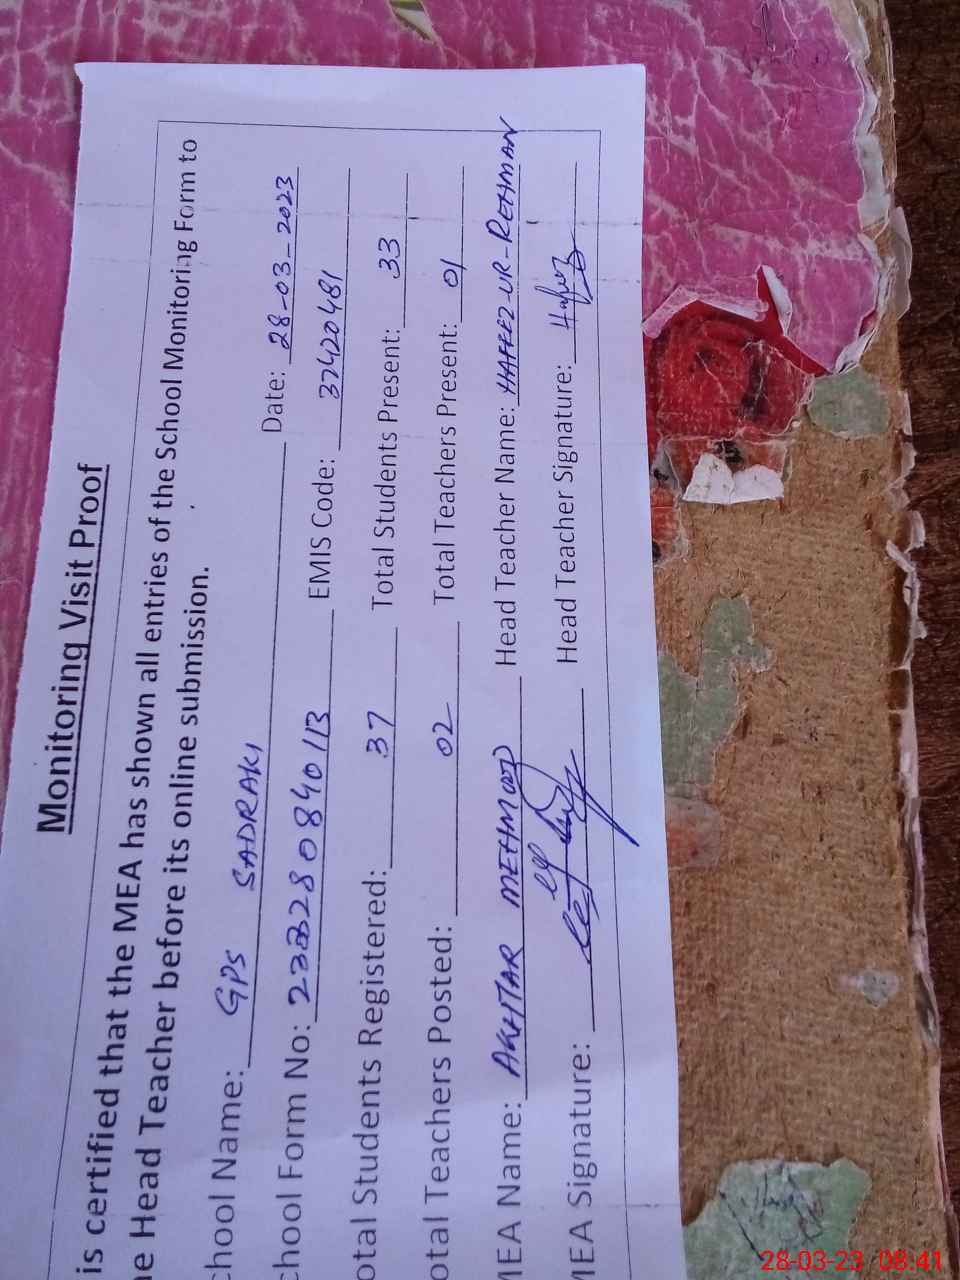 Monitoring Visit Proof
is certified that the MEA has shown all entries of the School Monitoring Form to
e Head Teacher before its online submission.
chool Name: GPS SADRAKI Date: 28-03-2023
chool Form No: EMIS Code: 37420481
otal Students Registered: 37 Total Students Present: 33
otal Teachers Posted: 02 Total Teachers Present: 01
MEA Name: AKHTAR MEHMOOD Head Teacher Name: HAFEEZ-UR-REHMAN
MEA Signature: Head Teacher Signature: Hafeez
28-03-23 08:41